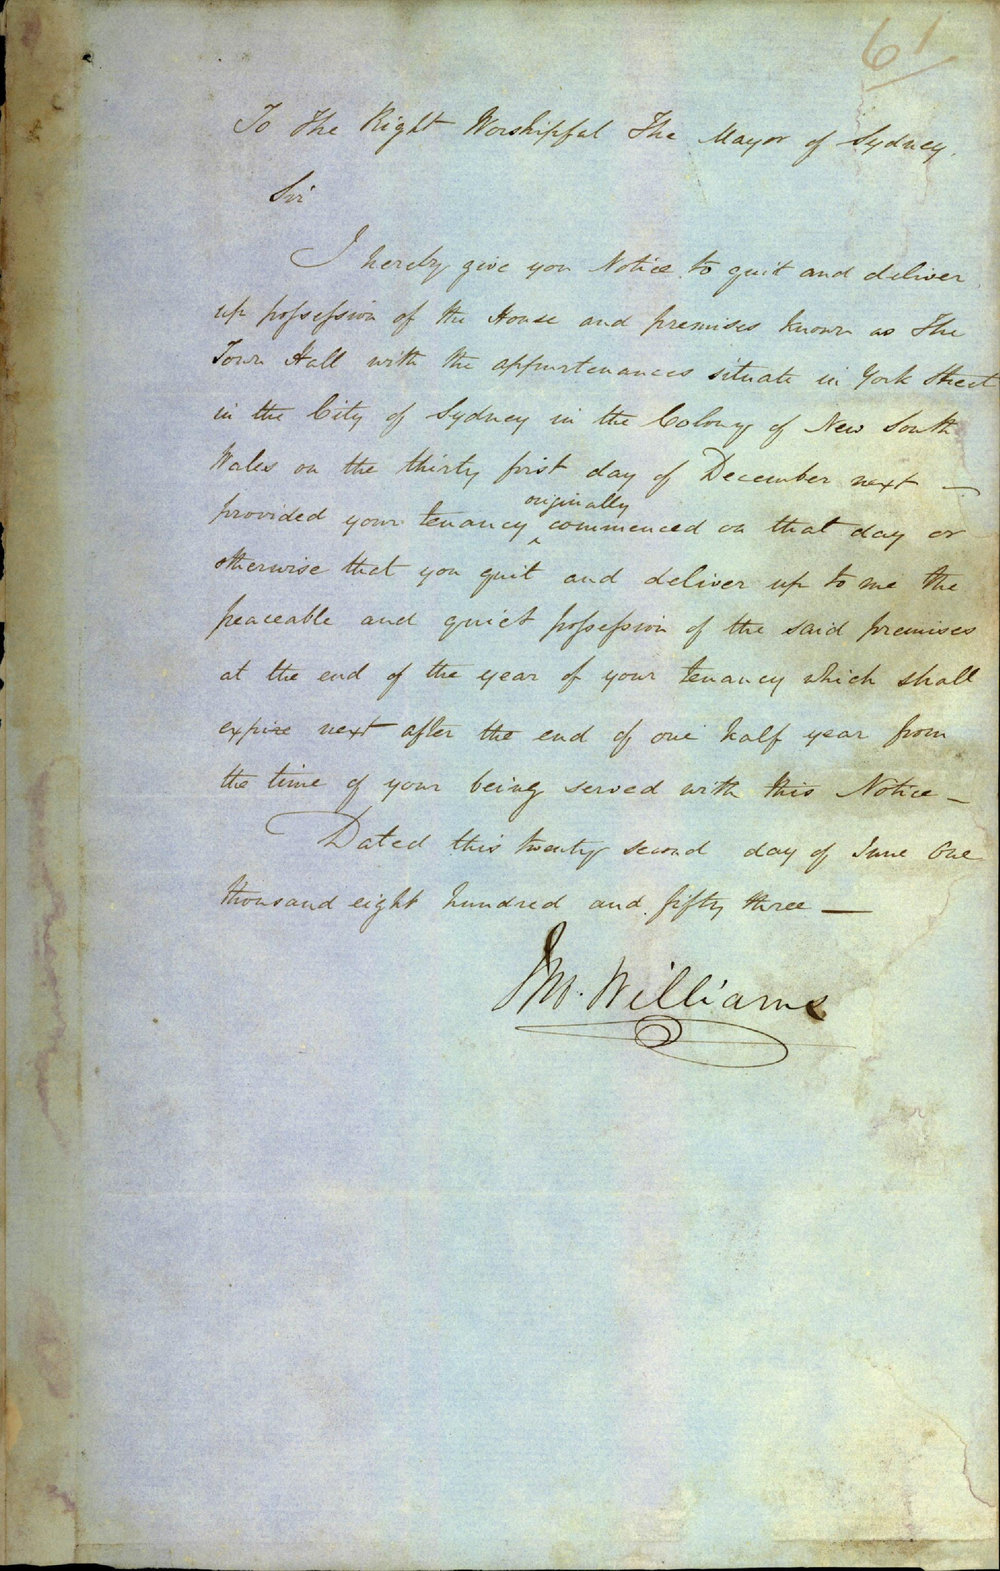 61
To The Right Worshipful The Mayor of Sydney.
Sir
I hereby give you Notice to quit and deliver
up possession of the House and premises known as The
Town Hall with the appurtenances situate in York Street
in the City of Sydney in the Colony of New South
Wales on the thirty first day of December next —
originally
provided your tenancy ^ commenced on that day or
otherwise that you quit and deliver up to me the
peaceable and quiet possession of the said premises
at the end of the year of your tenancy which shall
expire next after the end of one half year from
the time of your being served with this Notice —
Dated this twenty second day of June One
thousand eight hundred and fifty three —
Williams